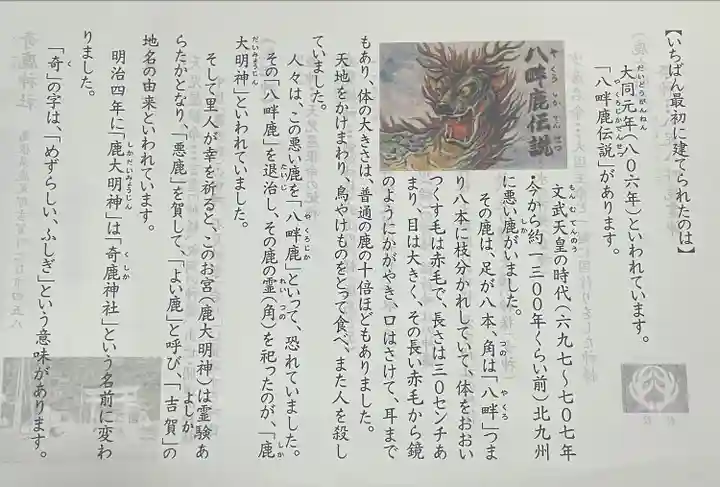 【いちばん最初に建てられたのは】
大同元年(八〇六年)といわれています。
「八畔鹿伝説」があります。
文武天皇の時代(六九七〜七〇七年
・今から約一三〇〇年くらい前)北九州
に悪い鹿がいました。
その鹿は、足が八本、角は「八畔」つま
り八本に枝分かれしていて、体をおおい
つくす毛は赤毛で、長さは三〇センチあ
まり、目は大きく、その長い赤毛から鏡
のようにかがやき、口はさけて、耳まで
もあり、体の大きさは、普通の鹿の十倍ほどもありました。
天地をかけまわり、鳥やけものをとって食べ、また人を殺し
ていました。
人々は、この悪い鹿を「八畔鹿」といって、恐れていました。
その「八畔鹿」を退治し、その鹿の霊(角)を祀ったのが、「鹿
大明神」といわれていました。
そして里人が幸を祈ると、このお宮(鹿大明神)は霊験あ
らたかとなり、「悪鹿」を賀して、「よい鹿」と呼び、「吉賀」の
地名の由来といわれています。
明治四年に「鹿大明神」は「奇鹿神社」という名前に変わ
りました。
「奇」の字は、「めずらしい、ふしぎ」という意味があります。
八畔鹿伝説